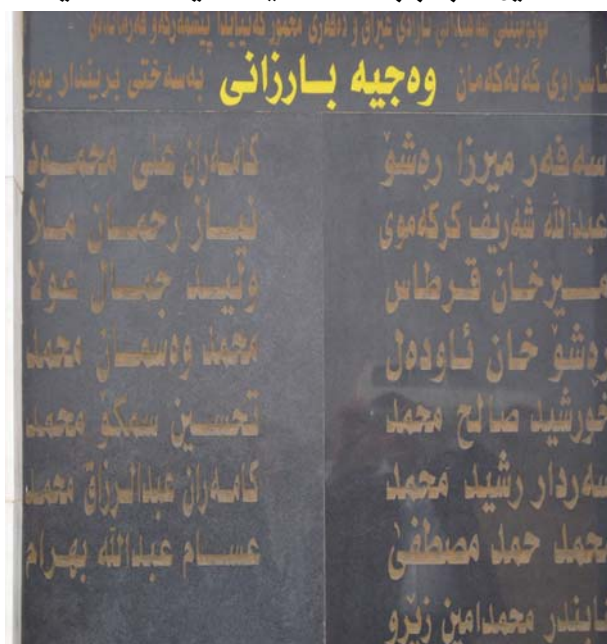 مۆنۆمێنتی شەهیدانی ئازادی عیراق و دەڤەری مخمور
ناسراوی گەلەکەمان وەجیە بارزانی بەسەختی بریندار بوو
سەفەر میرزا رەشۆ
عبداللە شەریف کرکەموی
میرخان قرطاس
رەشۆ خان ئاودەل
خورشید صالح محمد
سەردار رشید محمد
محمد حمد مصطفی
محمدامین زێرو
کامەران علی محمود
نیاز رحمان ملا
ولید جمال عولا
محمد وەسمان محمد
تحسین سمکۆ محمد
کامەران عبدالرزاق محمد
عسام عبداللە بهرام